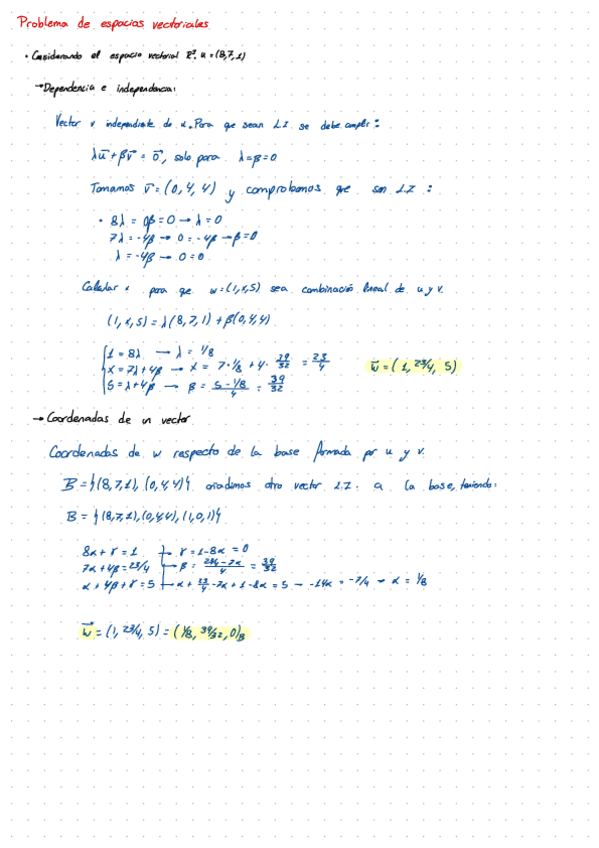 Problema de espacios vectoriales
• Considerando el espacio vectorial R³. u = (8,7,1)
→ Dependencia e independencia:
Vector v independiente de u. Para que sean L.I se debe cumplir:
λu⃗ + βv⃗ = 0⃗, solo para λ=β=0
Tomamos v⃗ = (0,4,4) y comprobamos que son L.I:
• 8λ = 0β = 0 → λ = 0
7λ = -4β → 0 = -4β → β = 0
λ = -4β → 0 = 0
Calcular x para que w=(1,x,5) sea combinación lineal de u y v.
(1,x,5) = λ(8,7,1) + β(0,4,4)
1 = 8λ → λ = 1/8
x = 7λ + 4β → x = 7·1/8 + 4·39/32 = 23/4
5 = λ + 4β → β = (5 - 1/8)/4 = 39/32
w⃗ = (1, 23/4, 5)
→ Coordenadas de un vector
Coordenadas de w respecto de la base formada por u y v.
B = {(8,7,1), (0,4,4)} añadimos otro vector L.I. a la base, teniendo:
B = {(8,7,1), (0,4,4), (1,0,1)}
8α + γ = 1 → γ = 1 - 8α = 0
7α + 4β = 23/4 → β = (23/4 - 7α)/4 = 39/32
α + 4β + γ = 5 → α + 23/4 - 7α + 1 - 8α = 5 → -14α = -7/4 → α = 1/8
w⃗ = (1, 23/4, 5) = (1/8, 39/32, 0)B